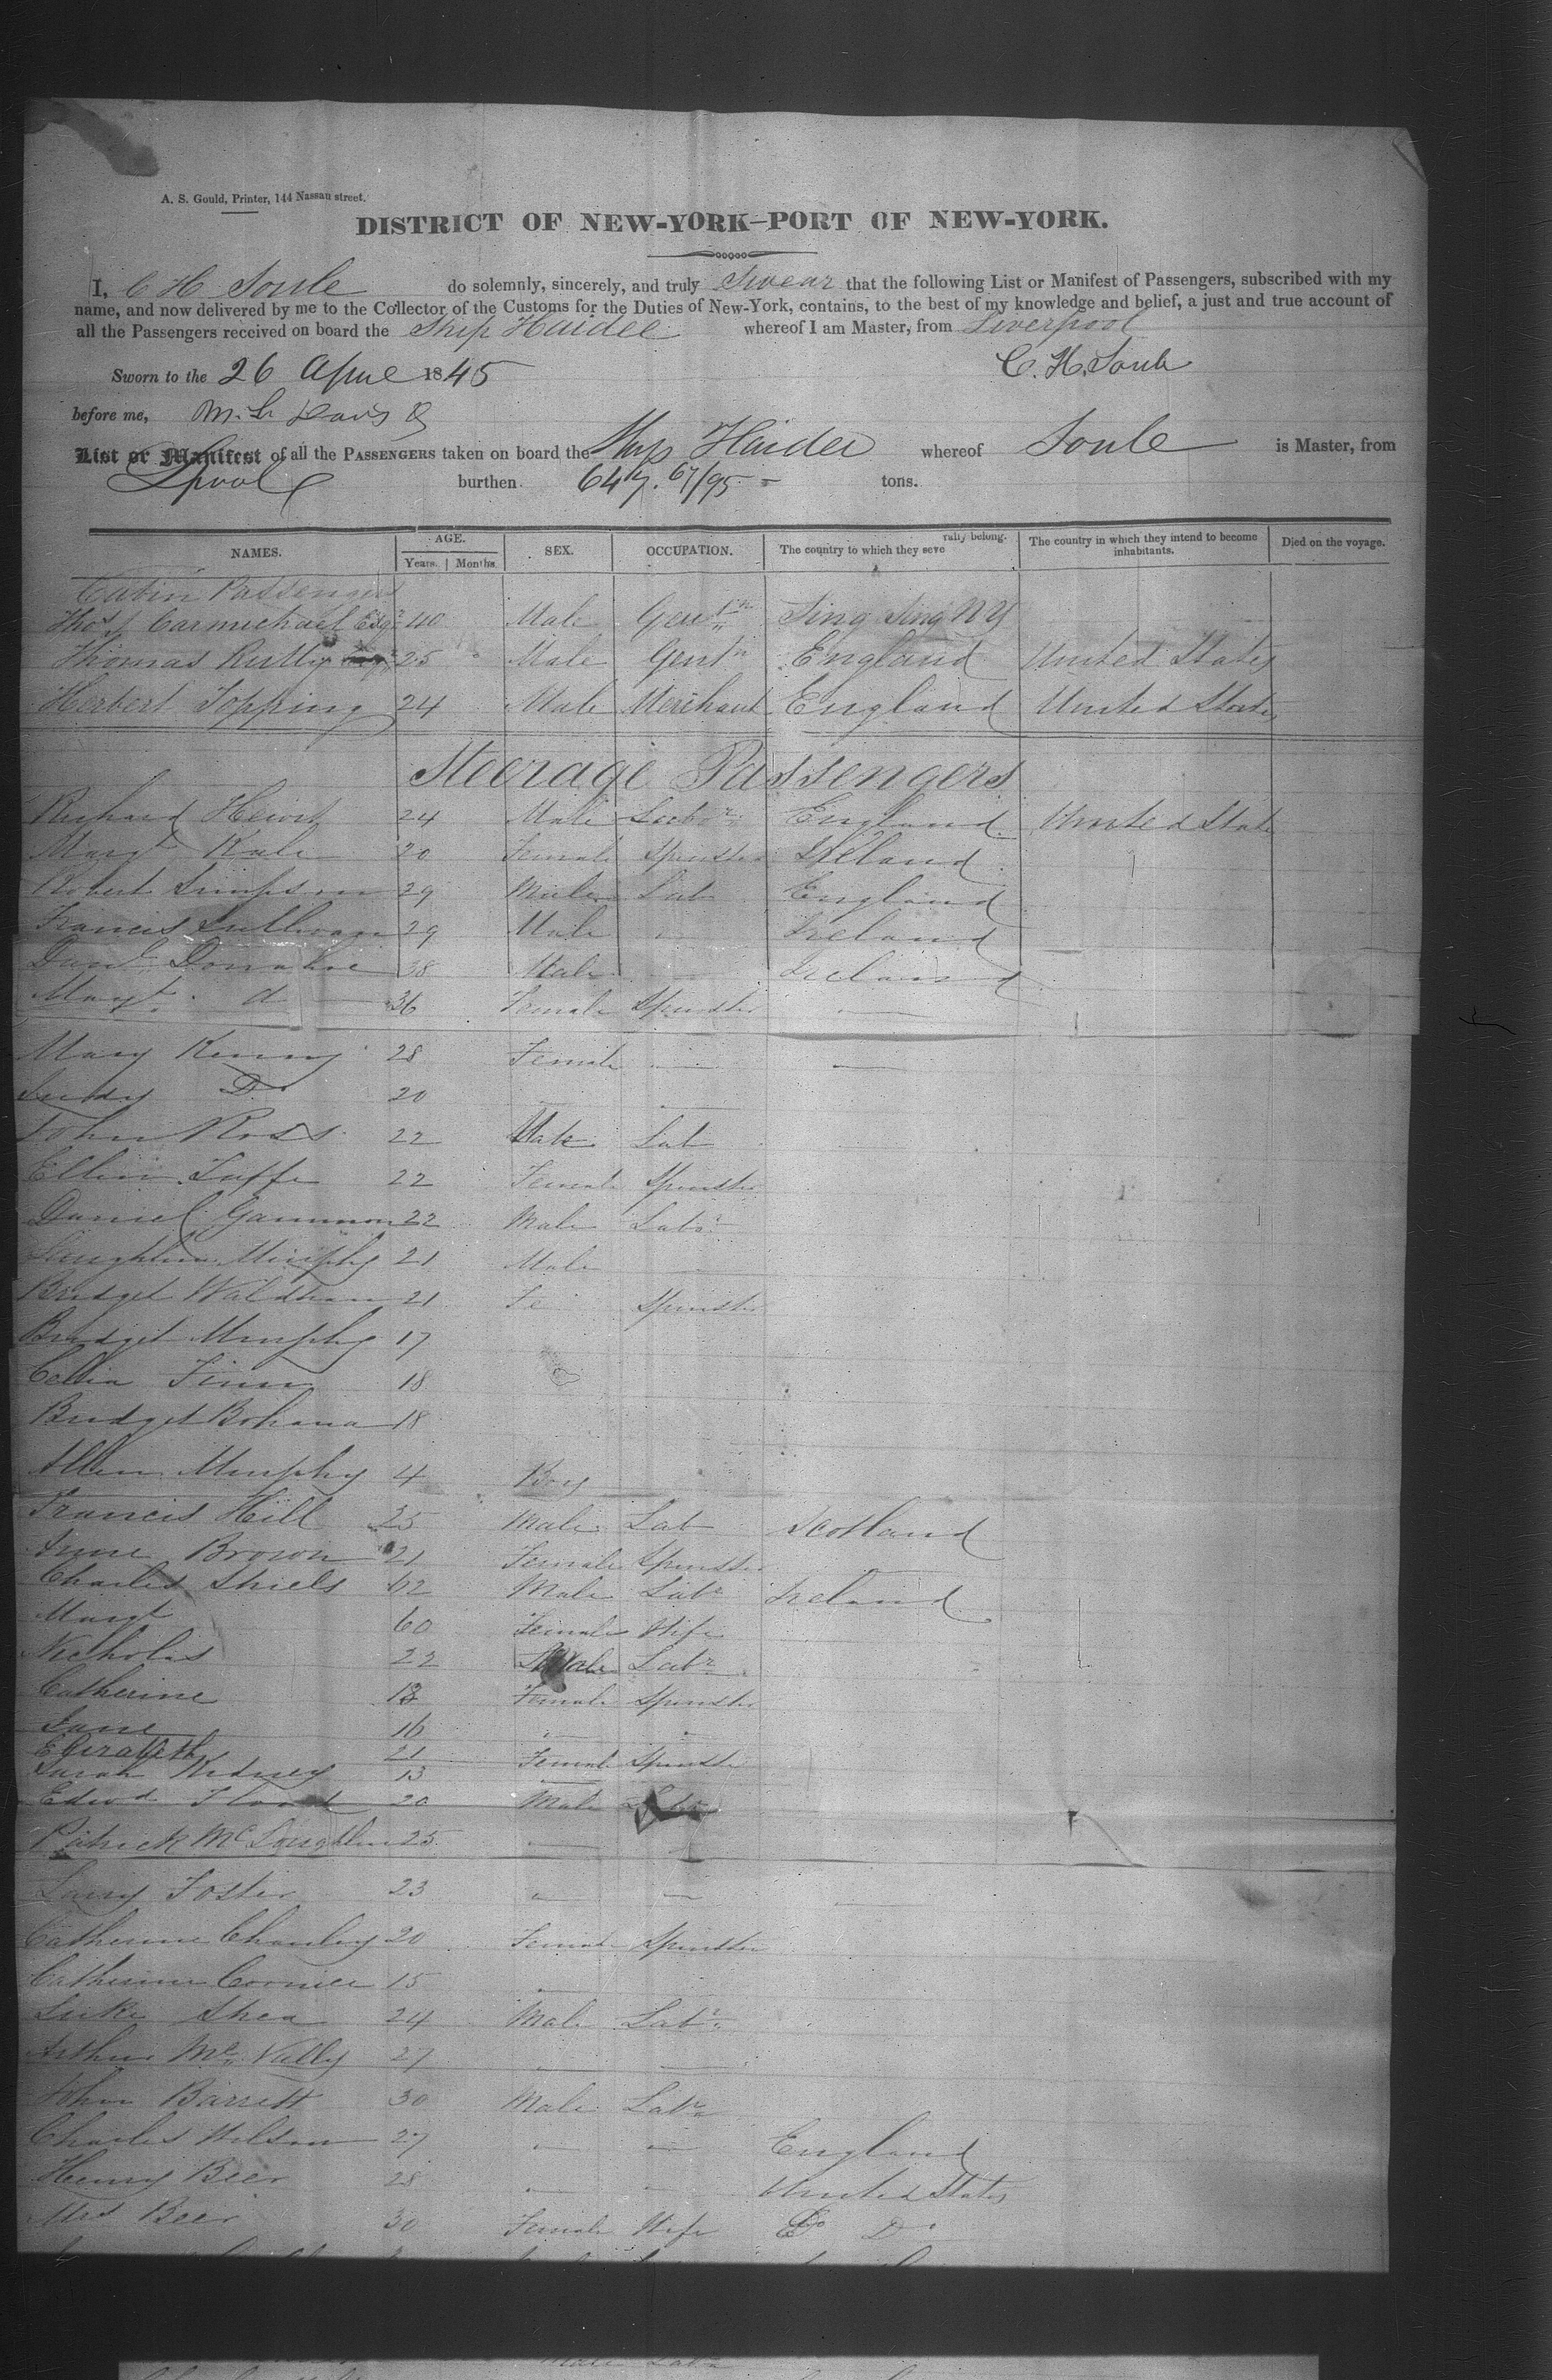 A. S. Gould, Printer, 144 Nassau street.
DISTRICT OF NEW-YORK—PORT OF NEW-YORK.
I, C H Soule do solemnly, sincerely, and truly Swear that the following List or Manifest of Passengers, subscribed with my
name, and now delivered by me to the Collector of the Customs for the Duties of New-York, contains, to the best of my knowledge and belief, a just and true account of
all the Passengers received on board the Ship Haidee whereof I am Master, from Liverpool
Sworn to the 26 April 1845 C. H. Soule
before me,
List or Manifest of all the PASSENGERS taken on board the Ship Haidee whereof Soule is Master, from
Lpool burthen 647. 67/95 tons.
NAMES. AGE. Years. Months. SEX. OCCUPATION. The country to which they severally belong. The country in which they intend to become inhabitants. Died on the voyage.
Cabin Passengers
Thos Carmichael Esqr 40 Male Gentn Sing Sing NY
Thomas 25 Male Gentn England United States
Herbert Topping 24 Male Merchant England United States
Steerage Passengers
Richard 24 Male Labr England United States
Margt 20 Female Spinster Ireland
Robert Simpson 29 Male Lab England
Francis Sullivan 29 Male " Ireland
Danl Donahue 38 Male — Ireland
Margt. d 36 Female Spinster —
Mary Kenny 28 Female — —
Do 20 — —
John Ross 22 Male Lab
Ellen 22 Female Spinster
Daniel Gammon 22 Male Labr
Laughlin Murphy 21 Male —
Bridget Waldron 21 Fe Spinster
Bridget Murphy 17
Celia Finn 18
Bridget Bohana 18
Murphy 4 Boy
Francis Hill 25 Male Lab Scotland
Brown 21 Female Spinster
Charles Shiels 62 Male Labr Ireland
Margt 60 Female Wife
Nicholas 22 Male Labr
Catherine 18 Female Spinster
Jane 16 " "
Elizabeth 21 Female Spinster
Sarah Kidney 13 —
Edwd Flood 20 Male Labr
Patrick McLoughlin 25 — —
Foster 23 — —
Catherine 20 Female Spinster
Catherine 15 —
Luke Shea 24 Male Labr
Arthur Mc 27 — —
John Barrett 30 Male Labr
Charles Wilson 27 — — England
Henry Beer 28 — — United States
Mrs Beer 30 Female Wife Do Do